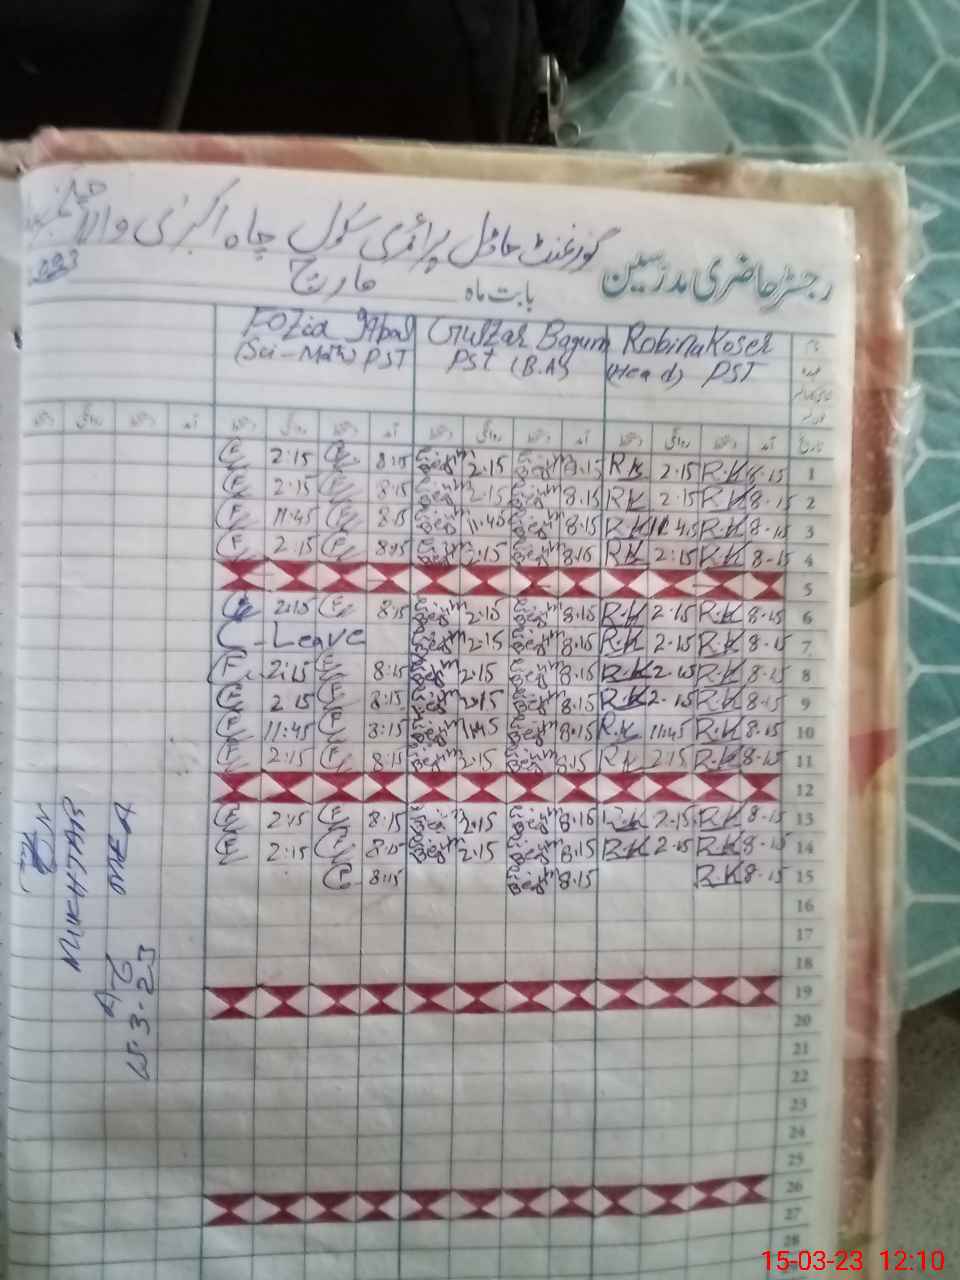 رجسٹر حاضری مدرسین گورنمنٹ ماڈل پرائمری سکول چاہ اکبر والا
بابت ماہ مارچ
Robina Koser Gulzar Bagum Fozia
(Head) PST PST (B.A) (Sci-Math) PST
تاریخ آمد دستخط روانگی دستخط آمد دستخط روانگی دستخط آمد دستخط روانگی دستخط آمد دستخط روانگی دستخط
1 8-15 R.K 2-15 R.K 8.15 Begum 2.15 Begum 8:15 F 2:15 F
2 8-15 R.K 2-15 R.K 8.15 Begum 2.15 Begum 8:15 F 2:15 F
3 8-15 R.K 11.45 R.K 8.15 Begum 11.45 Begum 8:15 F 11:45 F
4 8-15 R.K 2-15 R.K 8.15 Begum 2.15 Begum 8:15 F 2:15 F
5
6 8-15 R.K 2-15 R.K 8.15 Begum 2.15 Begum 8:15 F 2:15 F
7 8-15 R.K 2-15 R.K 8.15 Begum 2.15 Begum C-Leave
8 8-15 R.K 2-15 R.K 8.15 Begum 2.15 Begum 8:15 F 2:15 F
9 8-15 R.K 2-15 R.K 8.15 Begum 2.15 Begum 8:15 F 2 15 F
10 8-15 R.K 11:45 R.K 8.15 Begum 11.45 Begum 8:15 F 11:45 F
11 8-15 R.K 2-15 R.K 8.15 Begum 2.15 Begum 8:15 F 2:15 F
12
13 8-15 R.K 2-15 R.K 8.15 Begum 2.15 Begum 8:15 F 2:15 F
14 8-15 R.K 2-15 R.K 8.15 Begum 2.15 Begum 8:15 F 2:15 F
15 8-15 R.K 8.15 Begum 8:15 F
16
17
18
19
20
21
22
23
24
25
26
27
28
MUKHTAR
MEA
15-3-23
15-03-23 12:10